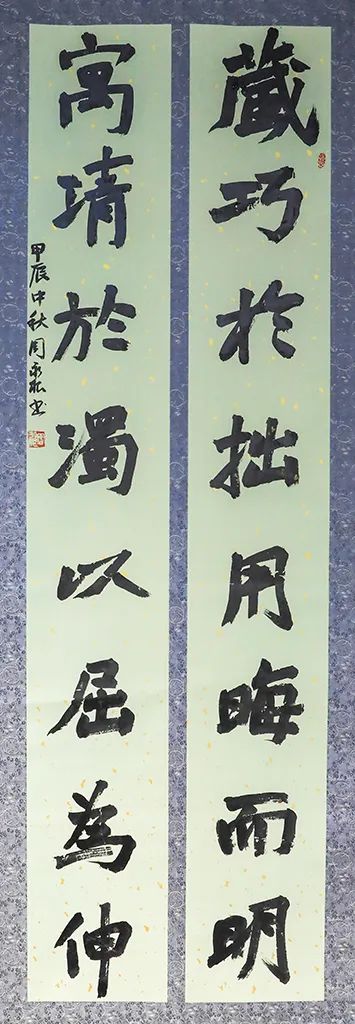 藏巧於拙用晦而明
寓清於濁以屈為伸
甲辰中秋周永松书